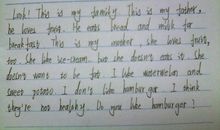 Look! This is my family. This is my father,
he loves fruit. He eats bread and milk for
breakfast. This is my mother she loves fruit,
too. She like ice-cream. but she doesn't eats it. She
doesn't wants to be fat. I like watermelon and
sweet potato. I don't like hamburger. I think
they're not healthy. Do you like hamburger?